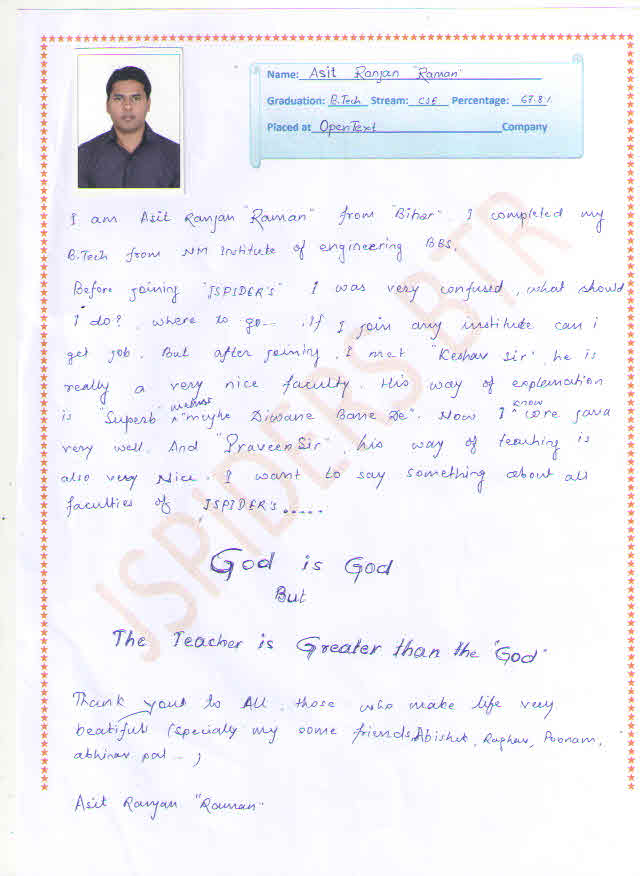 Name: Asit Ranjan "Raman"
Graduation: B.Tech Stream: CSE Percentage: 67.8%
Placed at OpenText Company
I am Asit Ranjan "Raman" from "Bihar". I completed my
B.Tech from NM Institute of engineering BBS.
Before joining "JSPIDER'S" I was very confused, what should
I do?, where to go... If I join any institute can i
get job. But after joining, I met "Keshav Sir", he is
really a very nice faculty. His way of explaination
is "Superb "mujhe Diwane Bane De". Now I know core java
very well. And "Praveen Sir", his way of teaching is
also very Nice. I want to say something about all
faculties of JSPIDER'S .....
God is God
But
The Teacher is Greater than the "God"
Thank you to All, those who make life very
beatiful (specially my some friends, Abishek, Raghav, Poonam,
abhinav pal ... )
Asit Ranjan "Raman"
JSPIDERS BTR